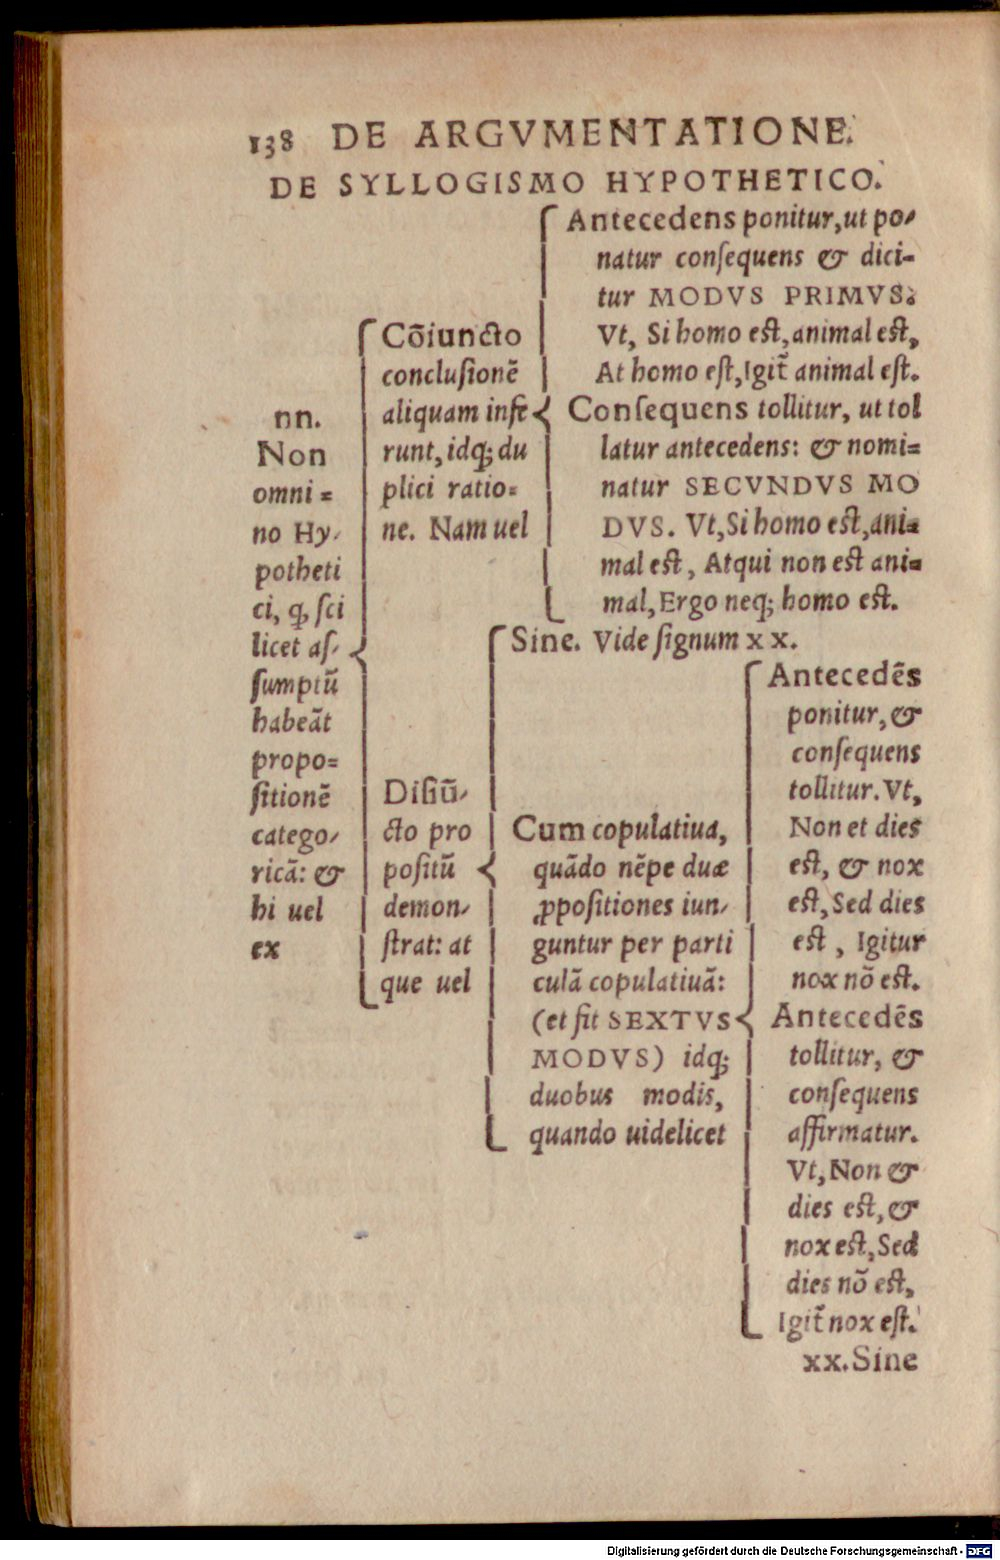 138 DE ARGVMENTATIONE.
DE SYLLOGISMO HYPOTHETICO.
nn.
Non
omni=
no Hy-
potheti
ci, ꝙ ſci
licet aſ-
ſumptū
habeāt
propo=
ſitionē
catego-
ricā: &
hi uel
ex
Cōiuncto
concluſionē
aliquam infe
runt, idq; du
plici ratio=
ne. Nam uel
Antecedens ponitur, ut po-
natur conſequens & dici-
tur MODVS PRIMVS.
Vt, Si homo eſt, animal eſt,
At homo eſt, Igit̃ animal eſt.
Conſequens tollitur, ut tol
latur antecedens: & nomi=
natur SECVNDVS MO
DVS. Vt, Si homo eſt, ani=
mal eſt, Atqui non est ani=
mal, Ergo neq; homo eſt.
Diſiū-
cto pro
poſitū
demon-
ſtrat: at
que uel
Sine. Vide ſignum xx.
Cum copulatiua,
quādo nēpe duæ
ꝓpoſitiones iun-
guntur per parti
culā copulatiuā:
(et fit SEXTVS
MODVS) idq;
duobus modis,
quando uidelicet
Antecedēs
ponitur, &
conſequens
tollitur. Vt,
Non et dies
eſt, & nox
eſt, Sed dies
eſt, Igitur
nox nō eſt.
Antecedēs
tollitur, &
conſequens
affirmatur.
Vt, Non &
dies eſt, &
nox eſt, Sed
dies nō eſt,
Igit̃ nox eſt.
xx. Sine
Digitalisierung gefördert durch die Deutsche Forschungsgemeinschaft - DFG